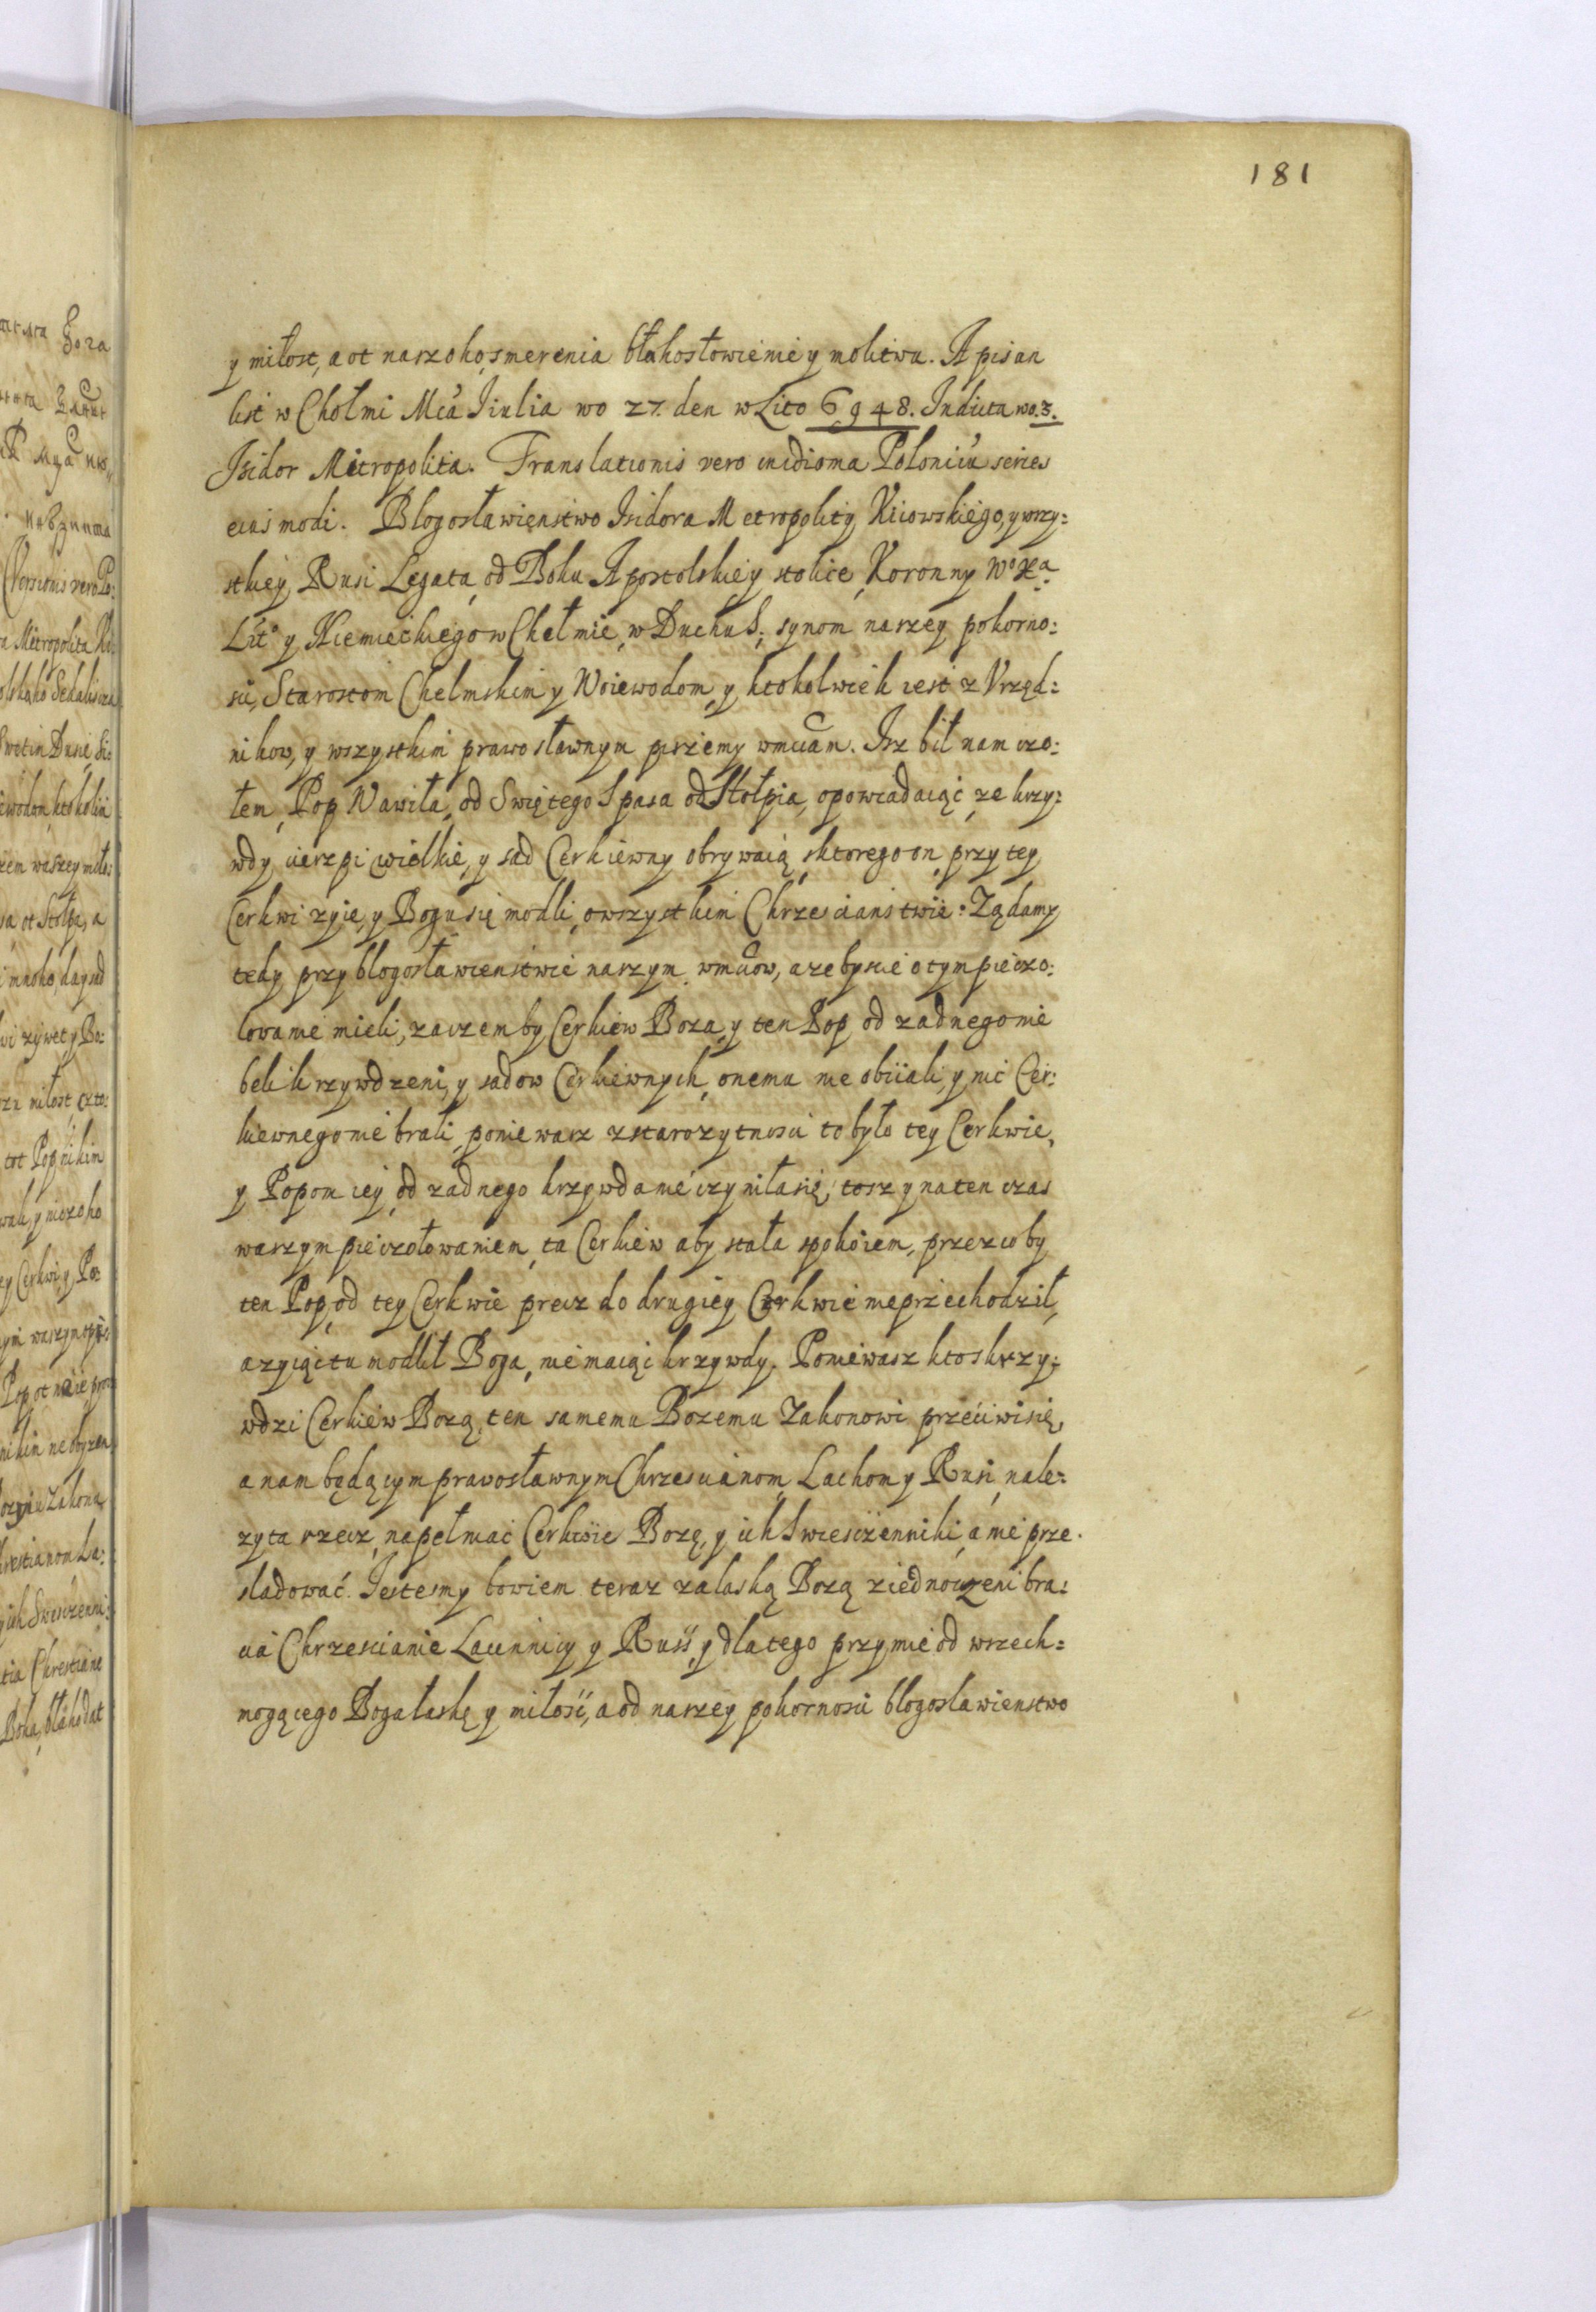 181
y miłost, a ot naszoho, smerenia błahosłowienie y molitwu. A pisan
list w Chołmi Mca Iiulia wo 27. den w Lito 6948. Indicta wo.3.
Isidor Mitropolita. Translationis vero in idioma Polonicu series
eius modi. Blogosławienstwo Isidora Metropolity Kiiowskiego, y wszy:
stkiey Rusi Legata, od Boku Apostolskiey stolice, Koronny Wo Xa
Lito y Niemieckiego w Chełmie, w Duchu S. synom naszey pokorno:
sci, Starostom Chelmskim y Woiewodom, y ktokolwiek iest z Vrzęd:
nikow, y wszystkim prawosławnym piszemy wmciam. Isz bił nam czo:
łem, Pop Wawiła, od Swiętego Spasa od Stołpia, opowiadaiąc, ze krzy:
wdy cierzpi wielkie, y sad Cerkiewny obrywaią, s ktorego on, przy tey
Cerkwi zyie, y Bogu się modli, o wszystkim Chrzescianstwie: Ządamy
tedy przy blogosławienstwie naszym wmciow, azebyscie o tym pieczo:
lowanie mieli, zaczem by Cerkiew Boza, y ten Pop od zadnego nie
beli krzywdzeni, y sadow Cerkiewnych, onemu nie obiiali, y nic Cer:
kiewnego nie brali, poniewasz z starozytnosci to było tey Cerkwie,
y Popom iey, od zadnego krzywda nie czyniła się, tosz y na ten czas
waszym pieczołowaniem, ta Cerkiew aby stała spokoiem, przez co by
ten Pop, od tey Cerkwie precz do drugiey Cerkwie nie przechodził,
a zyiąc tu modlił Boga, nie maiąc krzywdy. Poniewasz kto skrzy:
wdzi Cerkiew Bozą, ten samemu Bozemu Zakonowi przeciwi się,
a nam będącym prawosławnym Chrzescianom, Lachom y Rusi, nale:
zyta rzecz, napełniac Cerkwie Bozę, y ich Swiesczenniki, a nie prze.
sladować. Iestesmy bowiem teraz za laską Bozą ziednoczeni bra:
cia Chrzescianie Lacinnicy y Rusi, y dlatego przymie od wszech:
mogącego Boga łaskę y miłosc, a od naszey pokornosci blogoslawienstwo